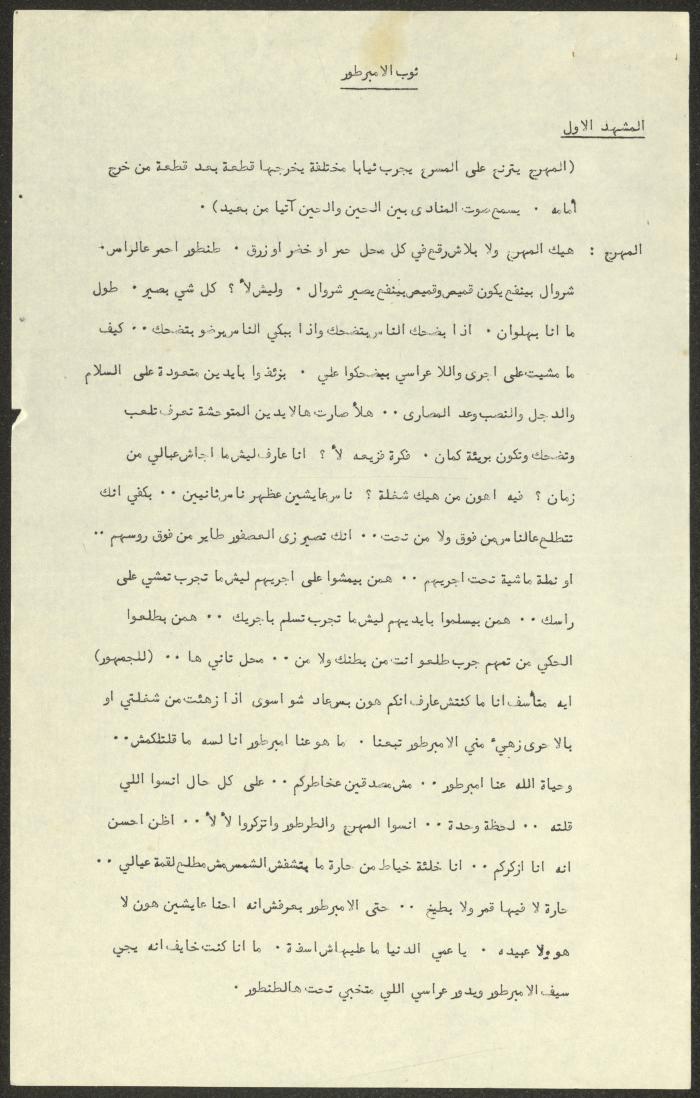 ثوب الامبرطور
المشهد الاول
(المهرج يترنح على المسرح يجرب ثيابا مختلفة يخرجها قطعة بعد قطعة من خرج
أمامه ٠ يسمع صوت المنادى بين الحين والحين آتيا من بعيد) ٠
المهرج : هيك المهرج ولا بلاش رقع في كل محل حمر او خضر او زرق ٠ طنطور احمر عالراس٠
شروال بينفع يكون قميص وقميص بينفع يصير شروال ٠ وليش لأ ؟ كل شي بصير ٠ طول
ما انا بهلوان ٠ اذا بضحك الناس بتضحك واذا ببكي الناس برضو بتضحك ٠٠ كيف
ما مشيت على اجرى واللا عراسي بيضحكوا علي ٠ بزقفوا بايدين متعودة على السلام
والدجل والنصب وعد المصارى ٠٠ هلأ صارت هالايدين المتوحشة تعرف تلعب
وتضحك وتكون بريئة كمان ٠ فكرة فزيعه لأ ؟ انا عارف ليش ما اجاش عبالي من
زمان ؟ فيه اهون من هيك شغلة ؟ ناس عايشين عظهر ناس ثانيين ٠٠ بكفي انك
تتطلع عالناس من فوق ولا من تحت ٠٠ انك تصير زى العصفور طاير من فوق روسهم ٠٠
او نملة ماشية تحت اجريهم ٠٠ همن بيمشوا على اجريهم ليش ما تجرب تمشي على
راسك ٠٠ همن بيسلموا بايديهم ليش ما تجرب تسلم باجريك ٠٠ همن بطلعوا
الحكي من تمهم جرب طلعو انت من بطنك ولا من ٠٠ محل تاني ها ٠٠ (للجمهور)
ايه متأسف انا ما كنتش عارف انكم هون بس عاد شو اسوى اذا زهئت من شغلتي او
بالاحرى زهيء مني الامبرطور تبعنا ٠ ما هو عنا امبرطور انا لسه ما قلتلكمش ٠٠
وحياة الله عنا امبرطور ٠٠ مش مصدقين عخاطركم ٠٠ على كل حال انسوا اللي
قلته ٠٠ لحظة وحدة ٠٠ انسوا المهرج والطرطور واتزكروا لأ لأ ٠٠ اظن احسن
انه انا ازكركم ٠٠ انا خلئة خياط من حارة ما بتشفش الشمس مش مطلع لقمة عيالي ٠٠
حارة لا فيها قمر ولا بطيخ ٠٠ حتى الامبرطور بعرفش انه احنا عايشين هون لا
هو ولا عبيده ٠ يا عمي الدنيا ما عليهاش اسفة ٠ ما انا كنت خايف انه يجي
سيف الامبرطور ويدور عراسي اللي متخبي تحت هالطنطور ٠